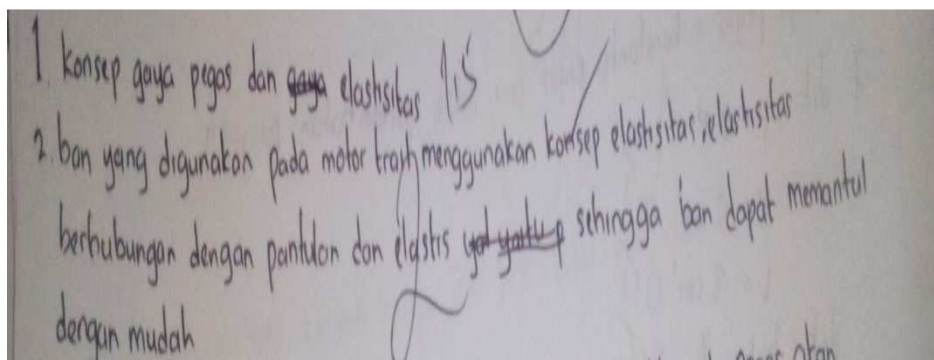 1. konsep gaya pegas dan elastisitas 1,5
2. ban yang digunakan pada motor trail menggunakan konsep elastisitas, elastisitas
berhubungan dengan pantulan dan elastis sehingga ban dapat memantul
dengan mudah
akan